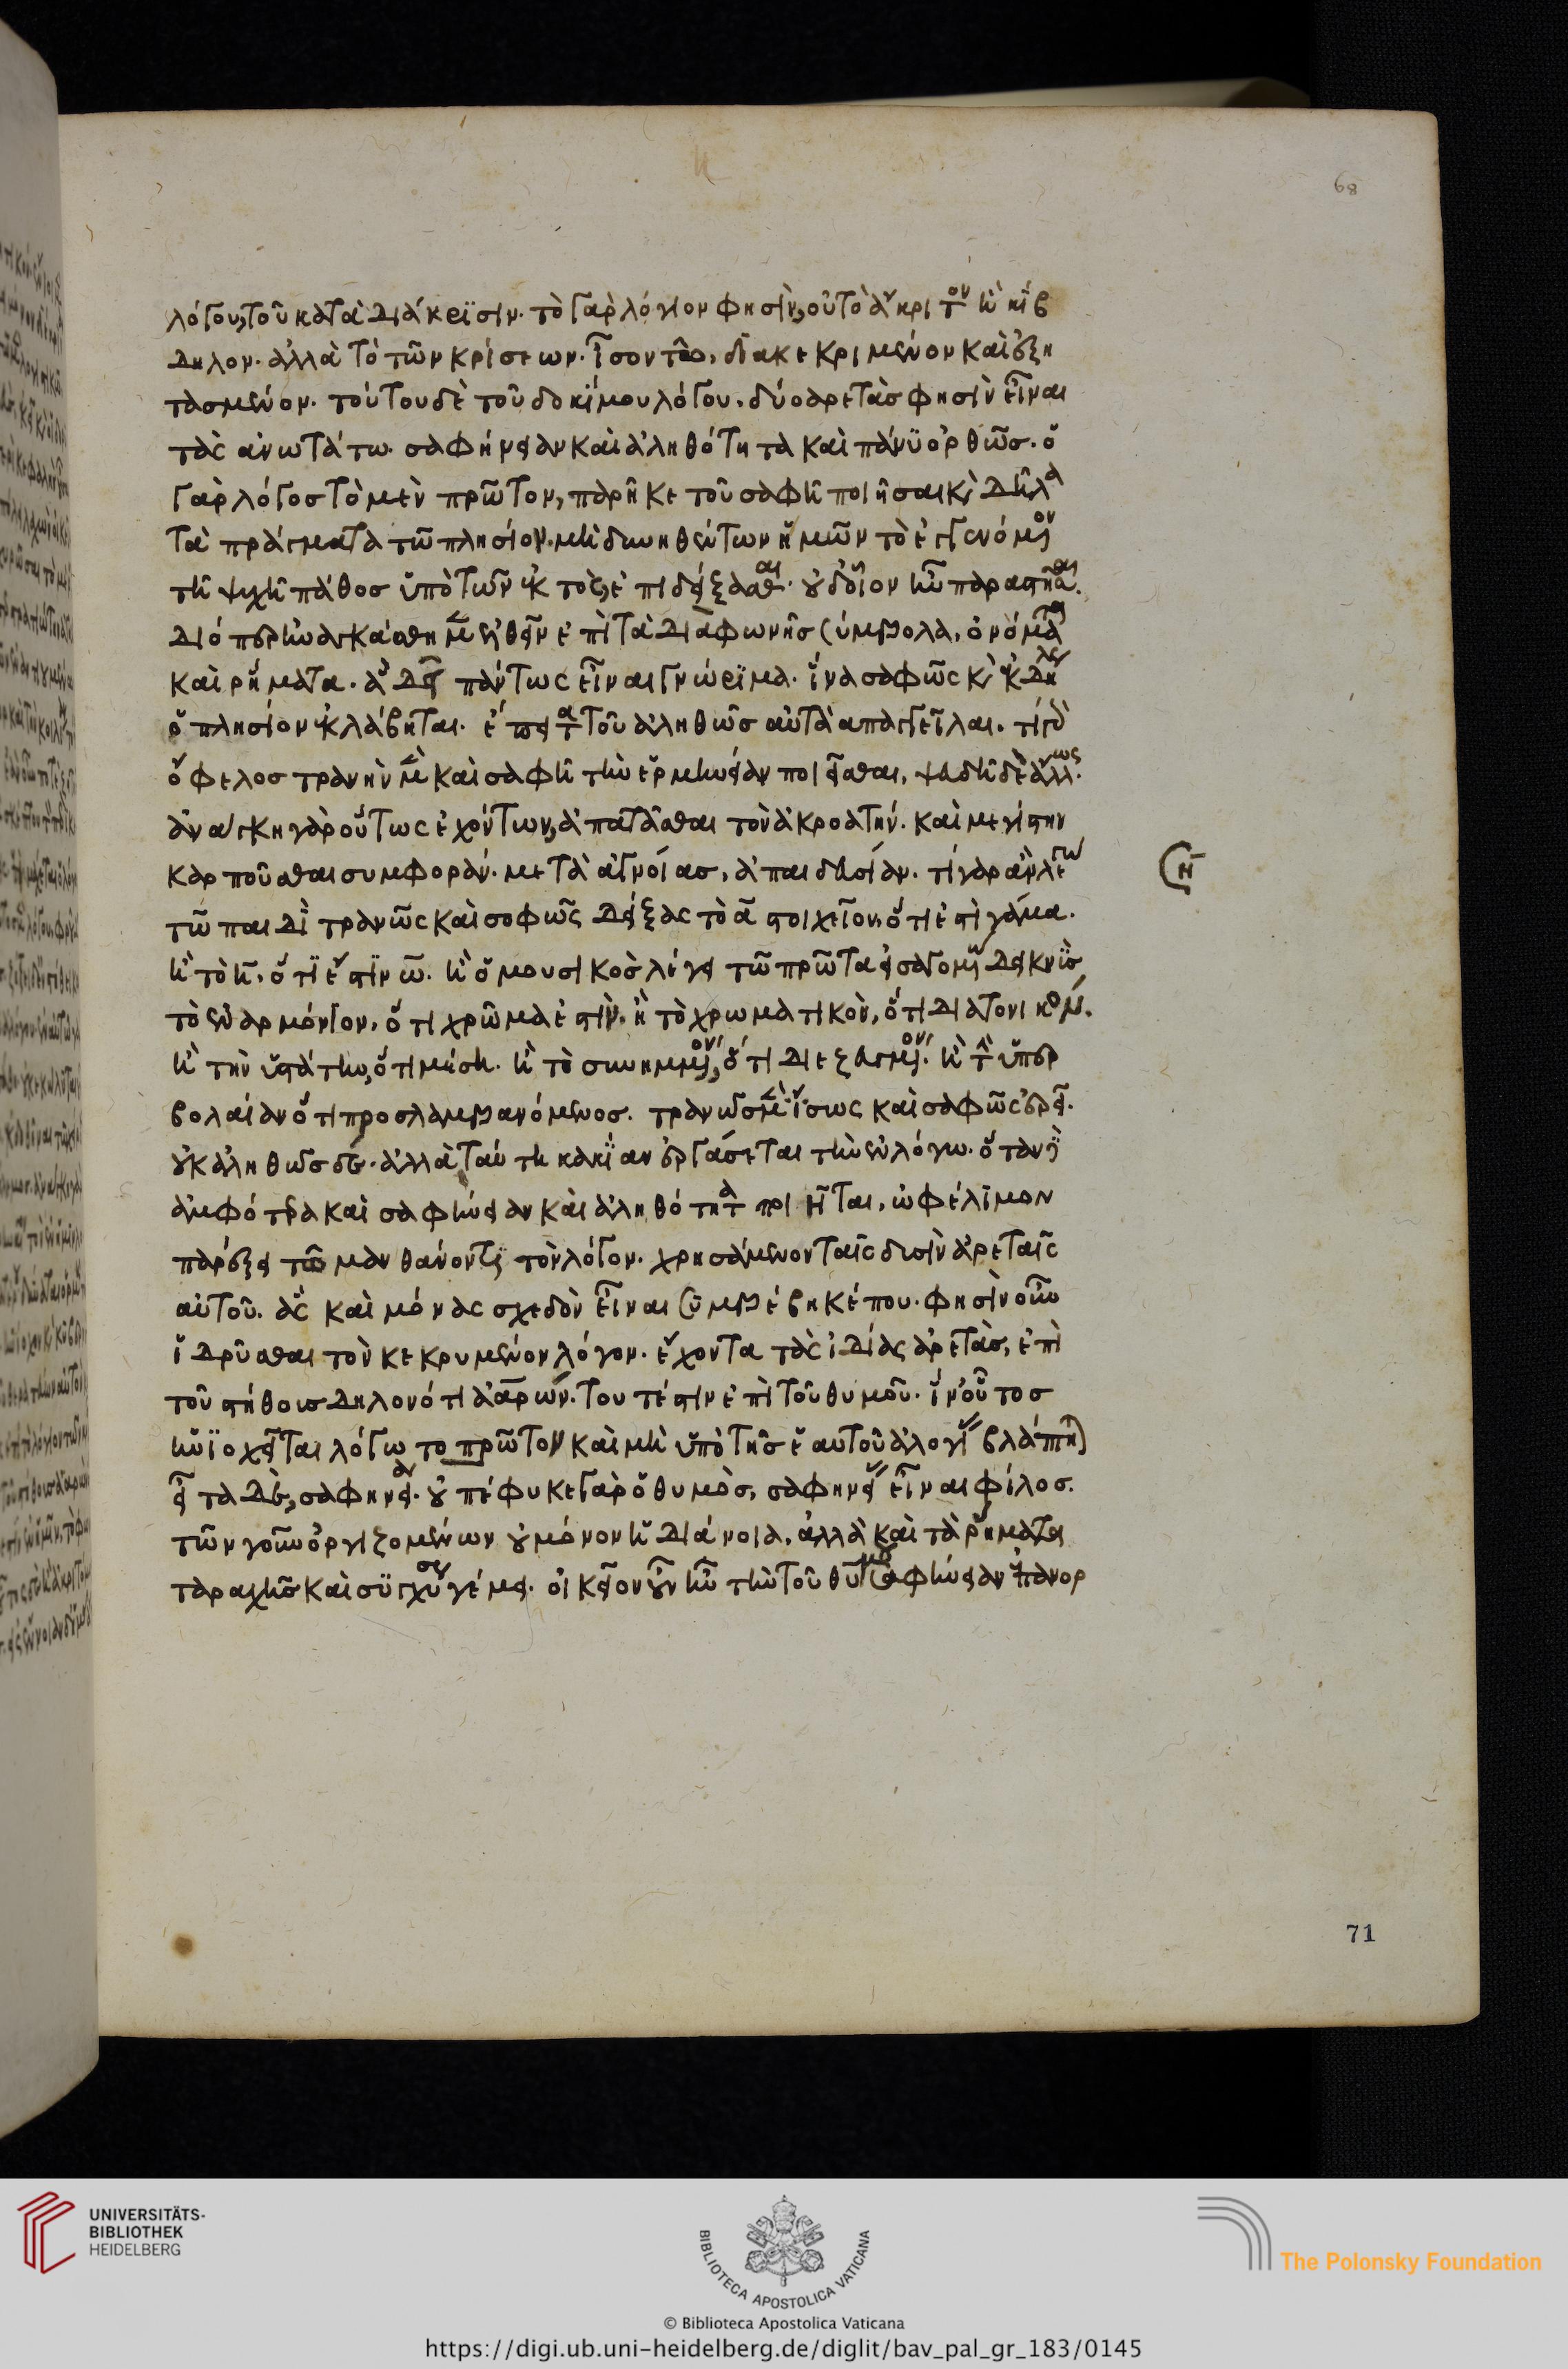 68
λόγου, τοῦ κατὰ διάκρισιν. τὸ γὰρ λόγιον φησὶν, οὐ τὸ ἄκριτον ἢ κίβ
δηλον. ἀλλὰ τὸ τῶν κρίσεων. ἴσον τῶ, διακεκριμένον καὶ ἐξη
τασμένον. τούτου δὲ τοῦ δοκίμου λόγου, δύο ἀρετάς φησὶν εἶναι
τὰς ἀνωτάτω. σαφήνειαν καὶ ἀληθότητα καὶ πάνυ ὀρθῶς. ὁ
γὰρ λόγος τὸ μὲν πρῶτον, παρῆκε τοῦ σαφῆ ποιῆσαι καὶ δῆλα
τὰ πράγματα τῶ πλησίον. μὴ δυνηθέντων ἡμῶν τὸ ἐγγενόμενον
τῆ ψυχῆ πάθος ὑπὸ τῶν ἐκτὸς, ἐπιδείξασθαι. οὐδ' οἷον ἦν παραστῆσαι.
διόπερ ἠναγκάσθημεν ἐλθεῖν ἐπὶ τὰ διὰ φωνῆς σύμβολα, ὀνόματα
καὶ ῥήματα. ἃ δεῖ πάντως εἶναι γνώριμα. ἵνα σαφῶς καὶ ἐκδήλως
ὁ πλησίον ἐκλάβηται. ἔπειτα τοῦ ἀληθῶς αὐτὰ ἀπαγγεῖλαι. τί γὰρ
ὄφελος τρανὴν μὲν καὶ σαφῆ τὴν ἑρμηνείαν ποιεῖσθαι, ψευδῆ δὲ ἄλλως.
ἀνάγκη γὰρ οὕτως ἐχόντων, ἀπατᾶσθαι τὸν ἀκροατήν. καὶ μεγίστην
καρποῦσθαι συμφοράν. μετὰ ἀγνοίας, ἀπαιδευσίαν. τί γὰρ ἂν λέγω
τῶ παιδὶ τρανῶς καὶ σοφῶς δείξας τὸ ᾱ στοιχεῖον, ὅτι ἐστὶ γάμμα.
ἢ τὸ η̄, ὅτι ἐστὶν ω̄. ἢ ὁ μουσικὸς λέγει τῶ πρῶτα εἰσαγομένω δεικνὺς
τὸ ἐναρμόνιον, ὅτι χρῶμα ἐστίν. ἢ τὸ χρωματικὸν, ὅτι διατονικόν.
ἢ τὴν ὑπάτην, ὅτι μέση. ἢ τὸ συνημμένον, ὅτι διεζευγμένον. ἢ τὴν ὑπερ
βολαίαν ὅτι προσλαμβανόμενος. τρανῶς μὲν ἴσως καὶ σαφῶς ἐρεῖ.
οὐκ ἀληθῶς δὲ. ἀλλὰ ταύτη κακίαν ἐργάσεται τὴν ἐν λόγω. ὅταν δὲ
ἀμφότερα καὶ σαφήνειαν καὶ ἀληθότητα ποιῆται, ὠφέλιμον
παρέξει τῶ μανθάνοντι τὸν λόγον. χρησάμενον ταῖς δυσὶν ἀρεταῖς
αὐτοῦ. ἃς καὶ μόνας σχεδὸν εἶναι συμβέβηκέ που. φησὶν οὖν
ἱδρῦσθαι τὸν κεκρυμένον λόγον. ἔχοντα τὰς ἰδίας ἀρετὰς, ἐπὶ
τοῦ στήθους δηλονότι ἀαρών. τουτέστιν ἐπὶ τοῦ θυμοῦ. ἵν' οὗτος
ἡνιοχεῖται λόγω τὸ πρῶτον καὶ μὴ ὑπὸ τῆς ἑαυτοῦ ἀλογίας βλάπτηται
εἶτα δὲ, σαφηνεία. οὐ πέφυκε γὰρ ὁ θυμὸς, σαφηνείας εἶναι φίλος.
τῶν γοῦν ὀργιζομένων οὐ μόνον ἡ διάνοια, ἀλλὰ καὶ τὰ ῥήματα
ταραχῆς καὶ συγχύσεως γέμει. οἰκεῖον οὖν ἦν τὴν τοῦ θυμοῦ ἀσάφειαν ἐπανορ
71
UNIVERSITÄTS-
BIBLIOTHEK
HEIDELBERG
BIBLIOTECA APOSTOLICA VATICANA
The Polonsky Foundation
© Biblioteca Apostolica Vaticana
https://digi.ub.uni-heidelberg.de/diglit/bav_pal_gr_183/0145